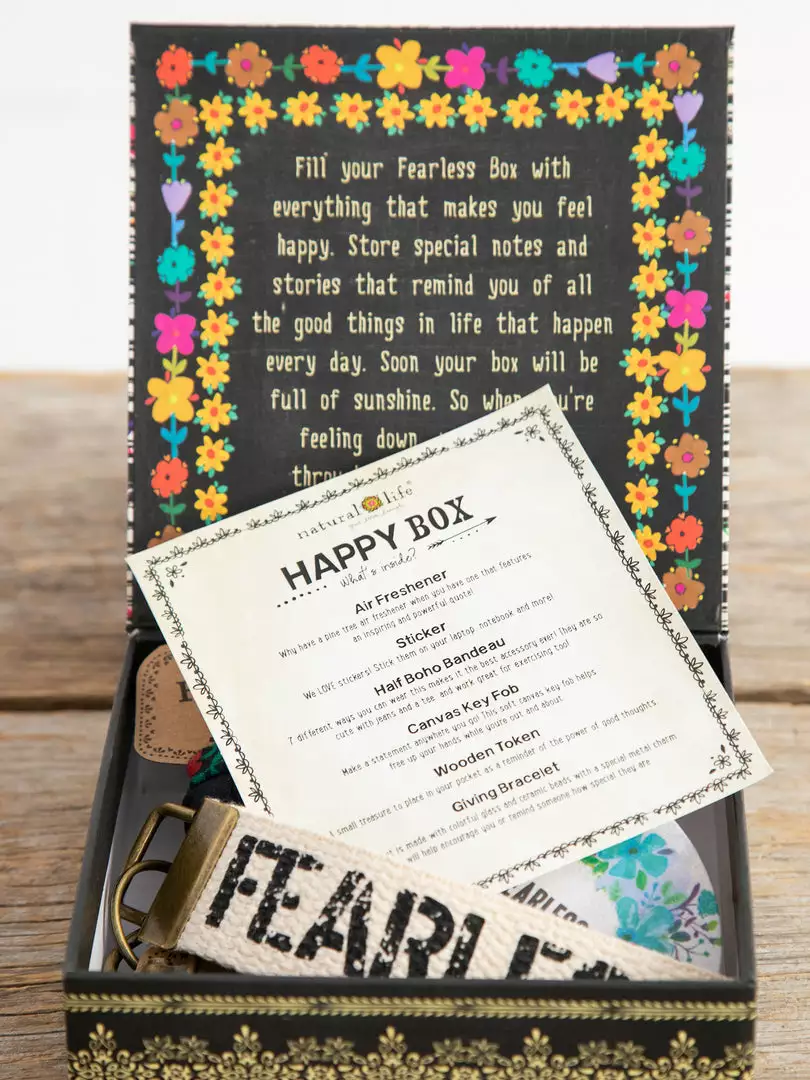 Fill your Fearless Box with
everything that makes you feel
happy. Store special notes and
stories that remind you of all
the good things in life that happen
every day. Soon your box will be
full of sunshine. So when you're
feeling down
natural life®
HAPPY BOX
What's inside?
Air Freshener
Why have a pine tree air freshener when you have one that features
an inspiring and powerful quote!
Sticker
We LOVE stickers! Stick them on your laptop, notebook and more!
Half Boho Bandeau
7 different ways you can wear this makes it the best accessory ever! They are so
cute with jeans and a tee and work great for exercising too!
Canvas Key Fob
Make a statement anywhere you go! This soft canvas key fob helps
free up your hands while you're out and about.
Wooden Token
small treasure to place in your pocket as a reminder of the power of good thoughts.
Giving Bracelet
is made with colorful glass and ceramic beads with a special metal charm
will help encourage you or remind someone how special they are
FEARLESS
FEARLE